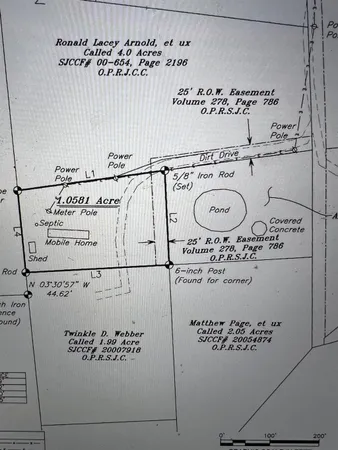 Ronald Lacey Arnold, et ux
Called 4.0 Acres
SJCCF# 00-654, Page 2196
O.P.R.J.C.C.
25' R.O.W. Easement
Volume 278, Page 786
O.P.R.S.J.C.
Power
Pole
Power
Pole
L1
Power
Pole
Dirt Drive
5/8" Iron Rod
(Set)
1.0581 Acre
Meter Pole
Septic
L4
L2
Pond
Covered
Concrete
Mobile Home
Shed
25' R.O.W. Easement
Volume 278, Page 786
O.P.R.S.J.C.
Rod
L3
6-inch Post
(Found for corner)
N 03'30'57" W
44.62'
Iron
Twinkle D. Webber
Called 1.99 Acre
SJCCF# 20007918
O.P.R.S.J.C.
Matthew Page, et ux
Called 2.05 Acres
SJCCF# 20054874
O.P.R.S.J.C.
0
100'
200'